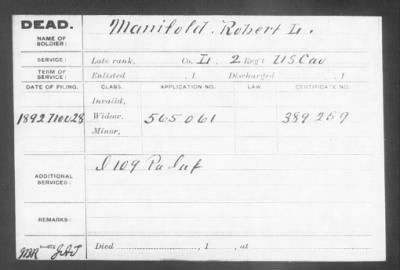 DEAD. Manifold. Robert L.
NAME OF SOLDIER:
SERVICE: Late rank, Co. L. 2 Reg't US Cav
TERM OF SERVICE: Enlisted , 1 Discharged , 1
DATE OF FILING. CLASS. APPLICATION NO. LAW. CERTIFICATE NO.
Invalid,
1892 Nov 28 Widow, 565061 389259
Minor,
ADDITIONAL SERVICES: I 109 Pa Inf
REMARKS:
Died , 1 , at